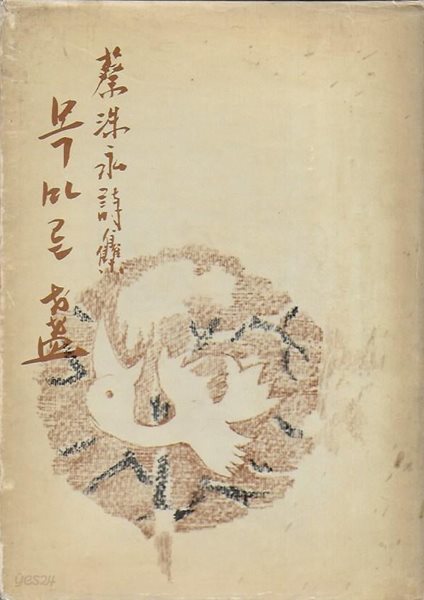 蔡洙永詩集
목마른
yes24